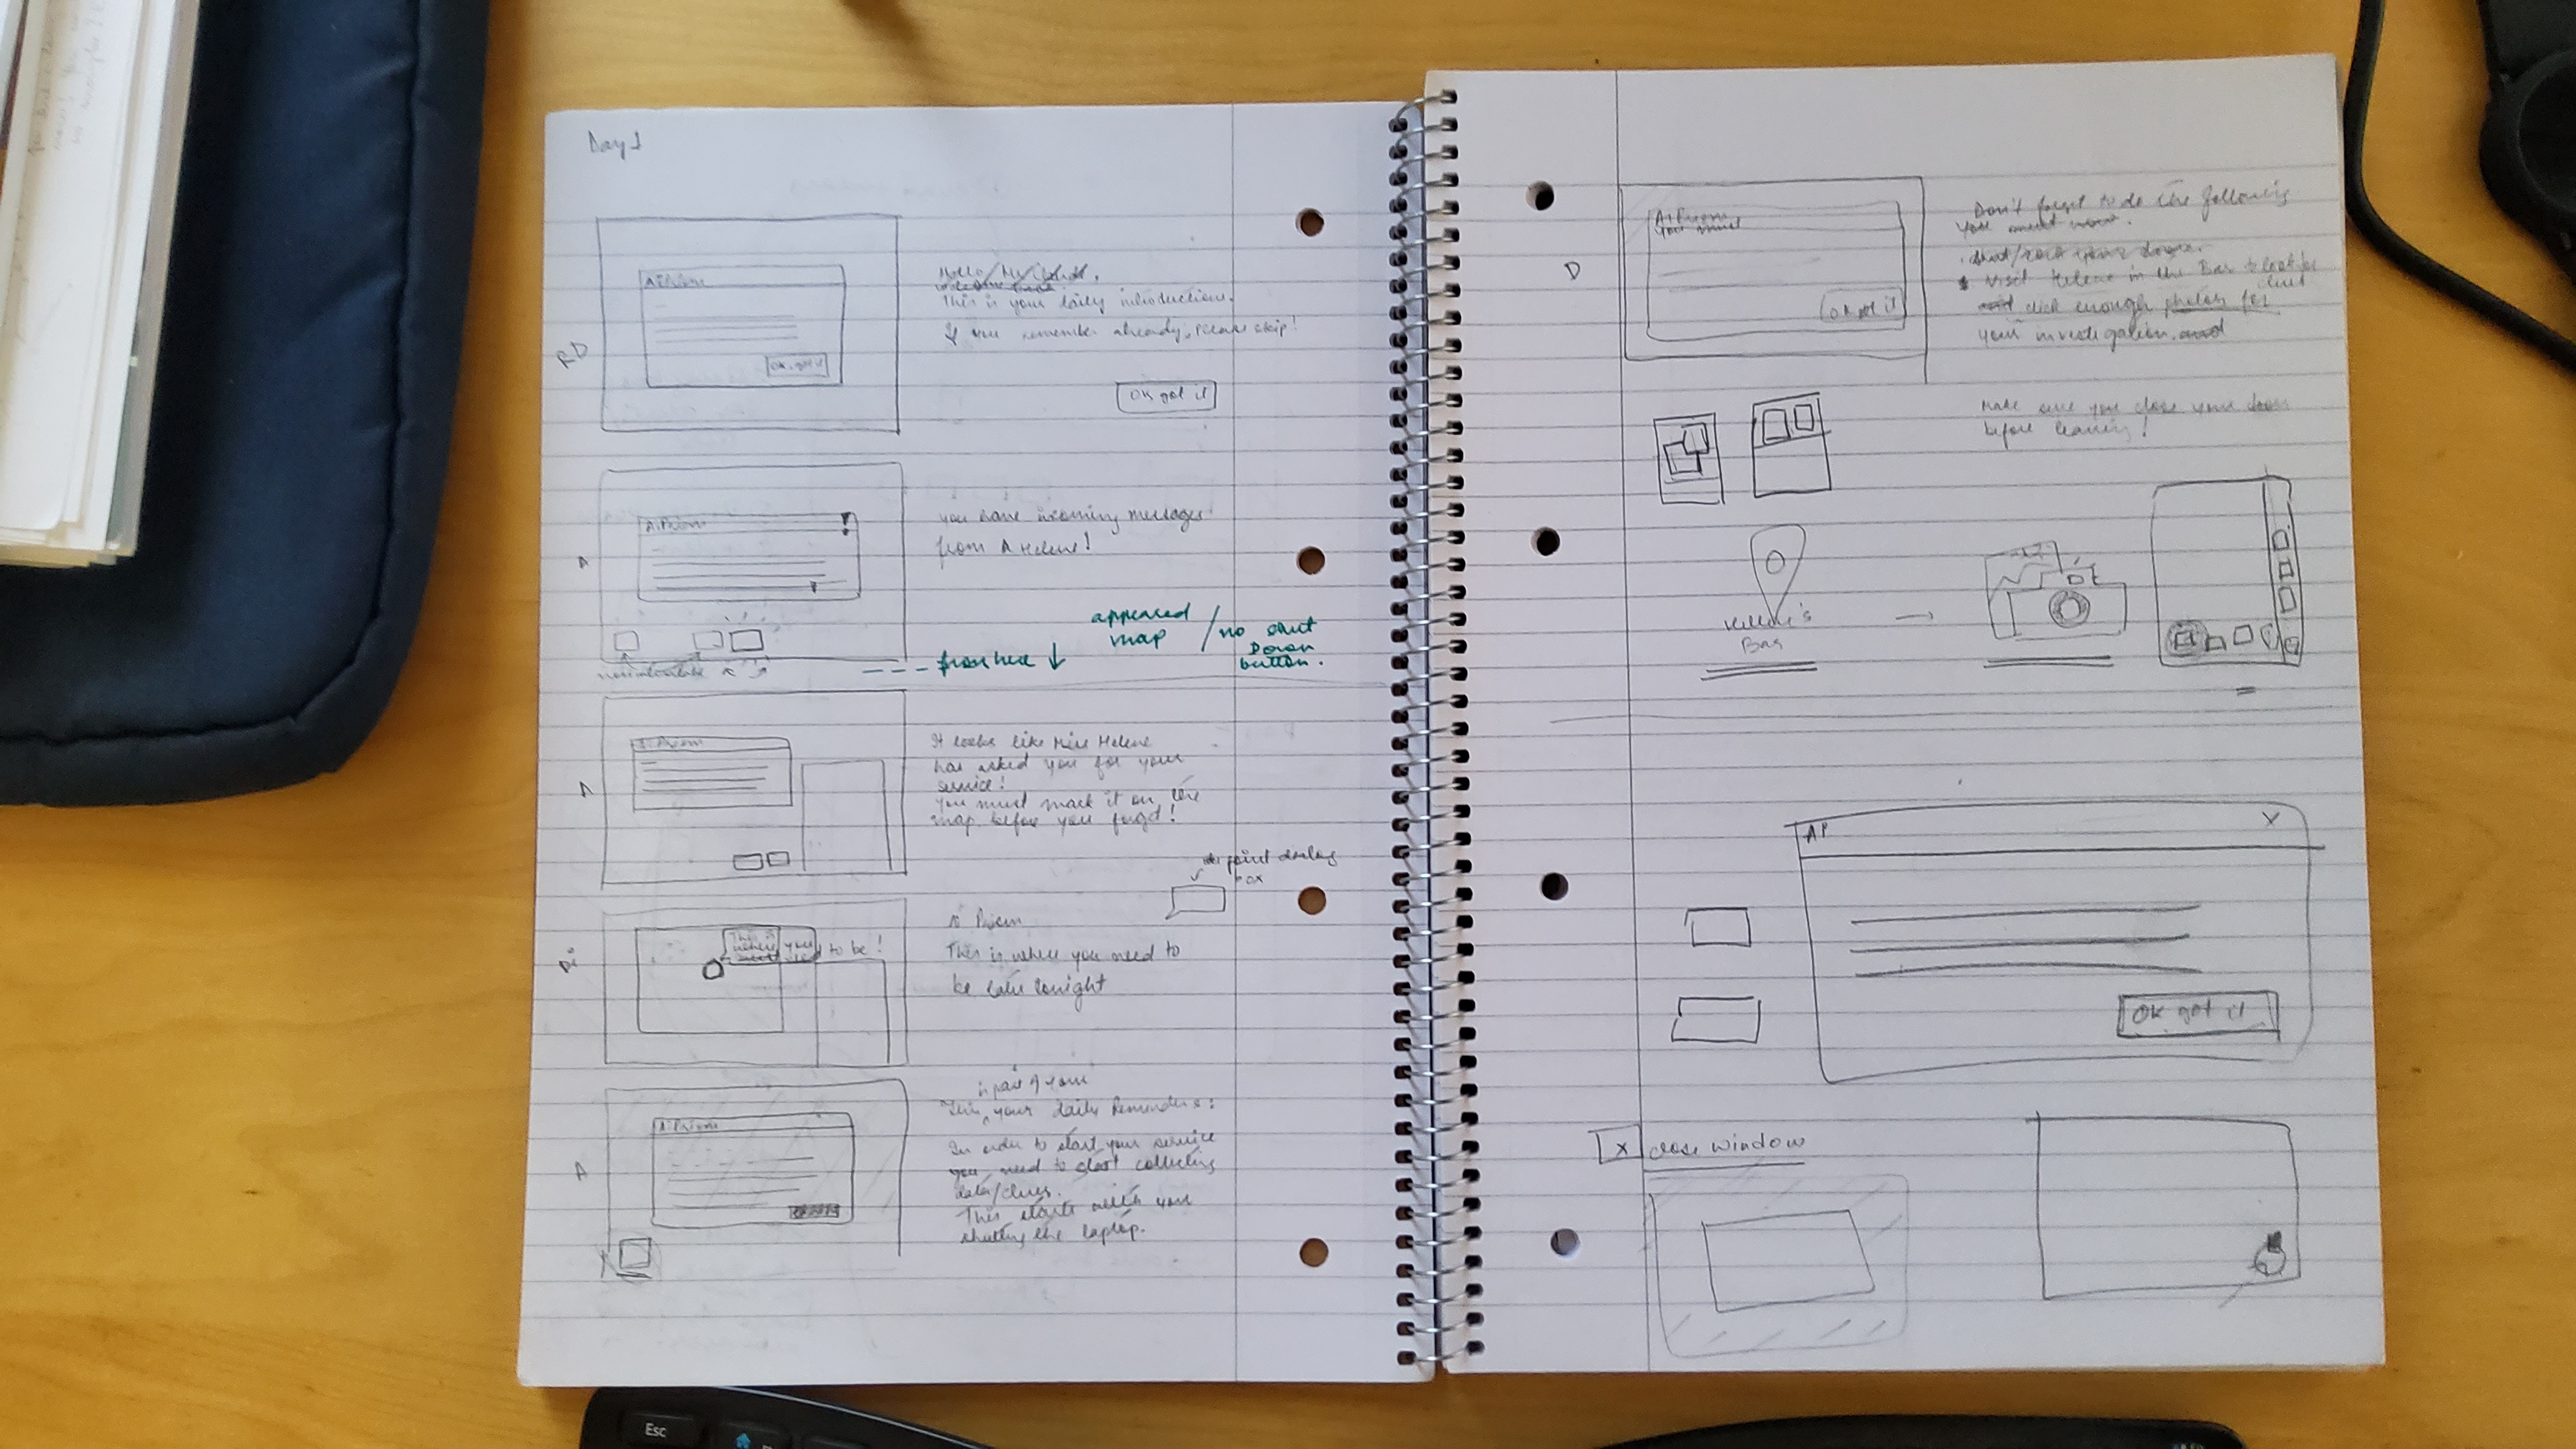 Day 1
A. Prism
OK. got it
RD
This is your daily introduction.
If you remember already, please skip!
OK got it
A. Prism
!
you have incoming messages
from A Helene!
A
appeared
map / no shut
Down
button.
from here ↓
A. Prism
It looks like Miss Helene
has asked you for your
service!
You must mark it on the
map before you forget!
A
point dialog
box
This is
where you
need to be!
A Prism
This is where you need to
be later tonight
is part of your
This your daily Reminders:
A. Prism
In order to start your service
you need to start collecting
data/clues.
This starts with you
shutting the laptop.
A
A. Prism
You must
OK got it
D
Don't forget to do the following
You must now.
shut/lock your door.
Visit Helene in the Bar to look for
clues
and click enough photos for
your investigation. and
Make sure you close your door
before leaving!
Helene's
Bar
→
AP
X
OK got it
X close window
Esc